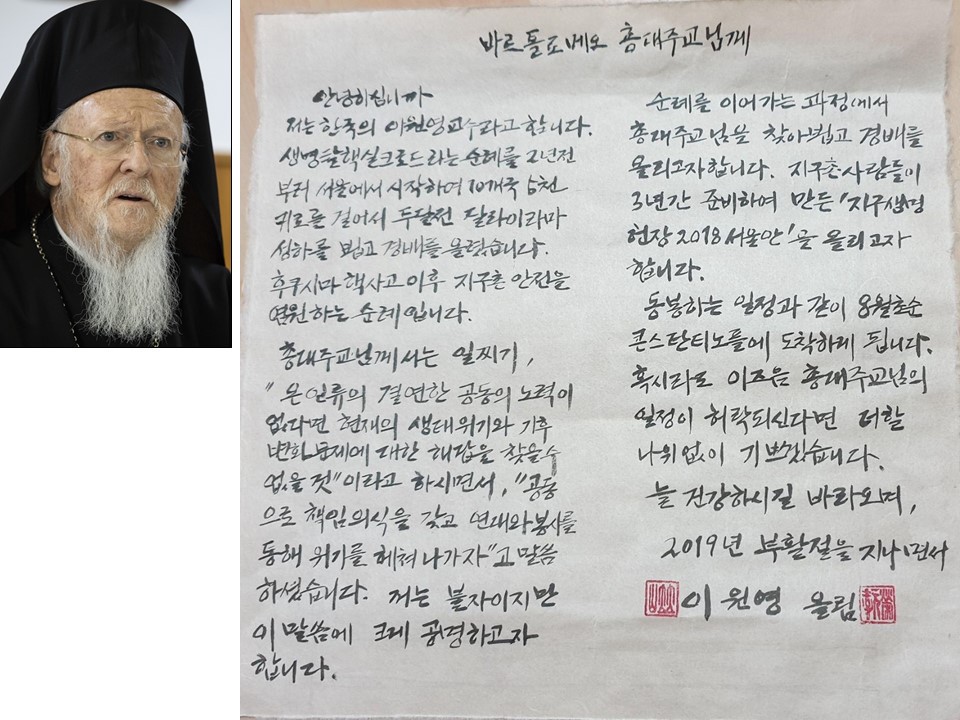 바르톨로메오 총대주교님께
안녕하십니까
저는 한국의 이원영교수라고 합니다.
생명탈핵실크로드라는 순례를 2년전
부터 서울에서 시작하여 10개국 5천
키로를 걸어서 두달전 달라이라마
성하를 뵙고 경배를 올렸습니다.
후쿠시마 핵사고 이후 지구촌 안전을
염원하는 순례입니다.
총대주교님께서는 일찌기,
"온인류의 결연한 공동의 노력이
없다면 현재의 생태위기와 기후
변화문제에 대한 해답을 찾을수
없을 것"이라고 하시면서, "공동
으로 책임의식을 갖고 연대와 봉사를
통해 위기를 헤쳐나가자"고 말씀
하셨습니다. 저는 불자이지만
이 말씀에 크게 공경하고자
합니다.
순례를 이어가는 과정에서
총대주교님을 찾아뵙고 경배를
올리고자 합니다. 지구촌사람들이
3년간 준비하여 만든 '지구생명
헌장 2018 서울안'을 올리고자
합니다.
동봉하는 일정과 같이 8월초순
콘스탄티노플에 도착하게 됩니다.
혹시라도 이즈음 총대주교님의
일정이 허락되신다면 더할
나위없이 기쁘겠습니다.
늘 건강하시길 바라오며,
2019년 부활절을 지나면서
이원영 올림